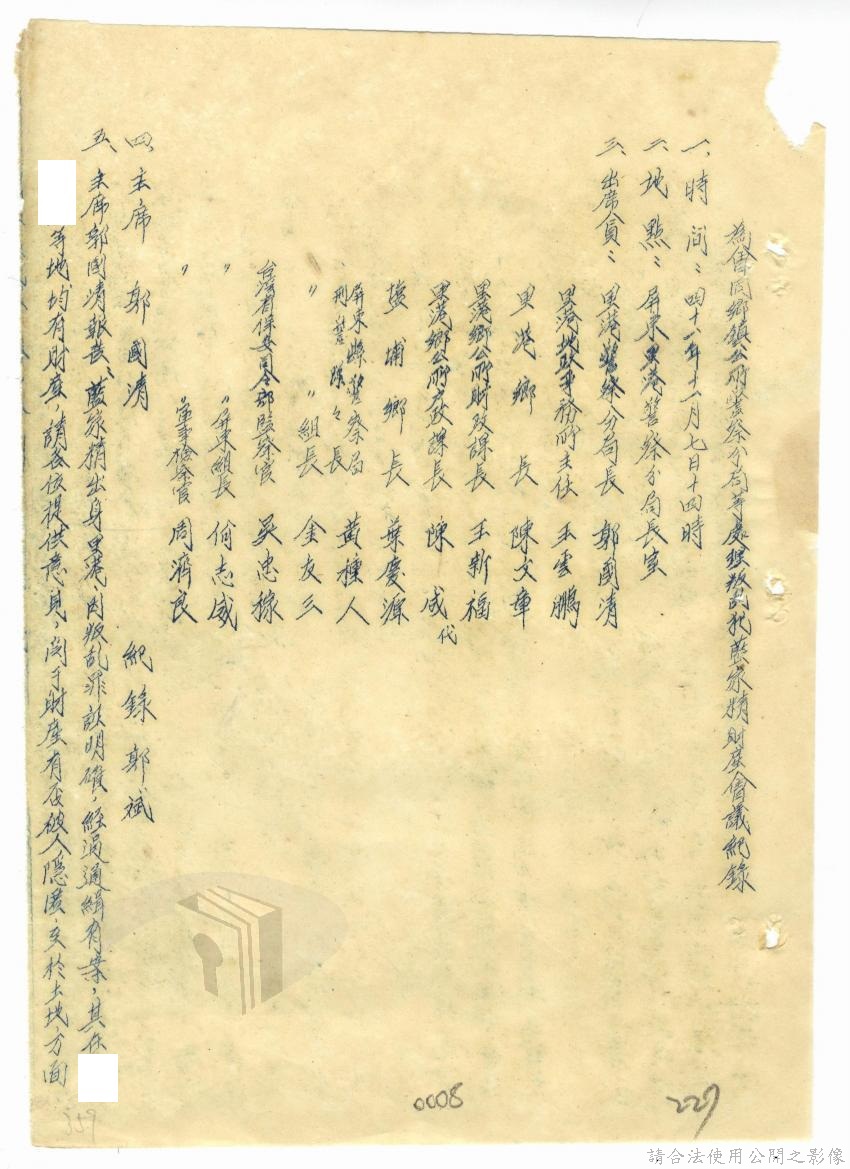 為會同鄉鎮公所警察分局等處理叛亂犯藍家精財產會議紀錄
一、時間：四十一年十一月七日十四時
二、地點：屏東里港警察分局長室
三、出席人員：里港警察分局長 郭國清
里港地政事務所主任 王雲鵬
里港鄉長 陳文章
里港鄉公所財政課長 王新福
里港鄉公所民政課長 陳成代
鹽埔鄉長 葉慶源
屏東縣警察局刑警隊々長 黃種人
〃 〃組長 金友三
台灣省保安司令部監察官 吳忠稼
〃 〃屏東組長 何志威
〃 〃軍事檢察官 周濟良
四、主席 郭國清 紀錄 郭斌
五、主席郭國清報告、藍家精出身里港、因叛乱罪証明確，經過通緝有案，其在
等地均有財產，請各位提供意見，関于財產有否被人隱匿，至於土地方面
0008
227
359
請合法使用公開之影像